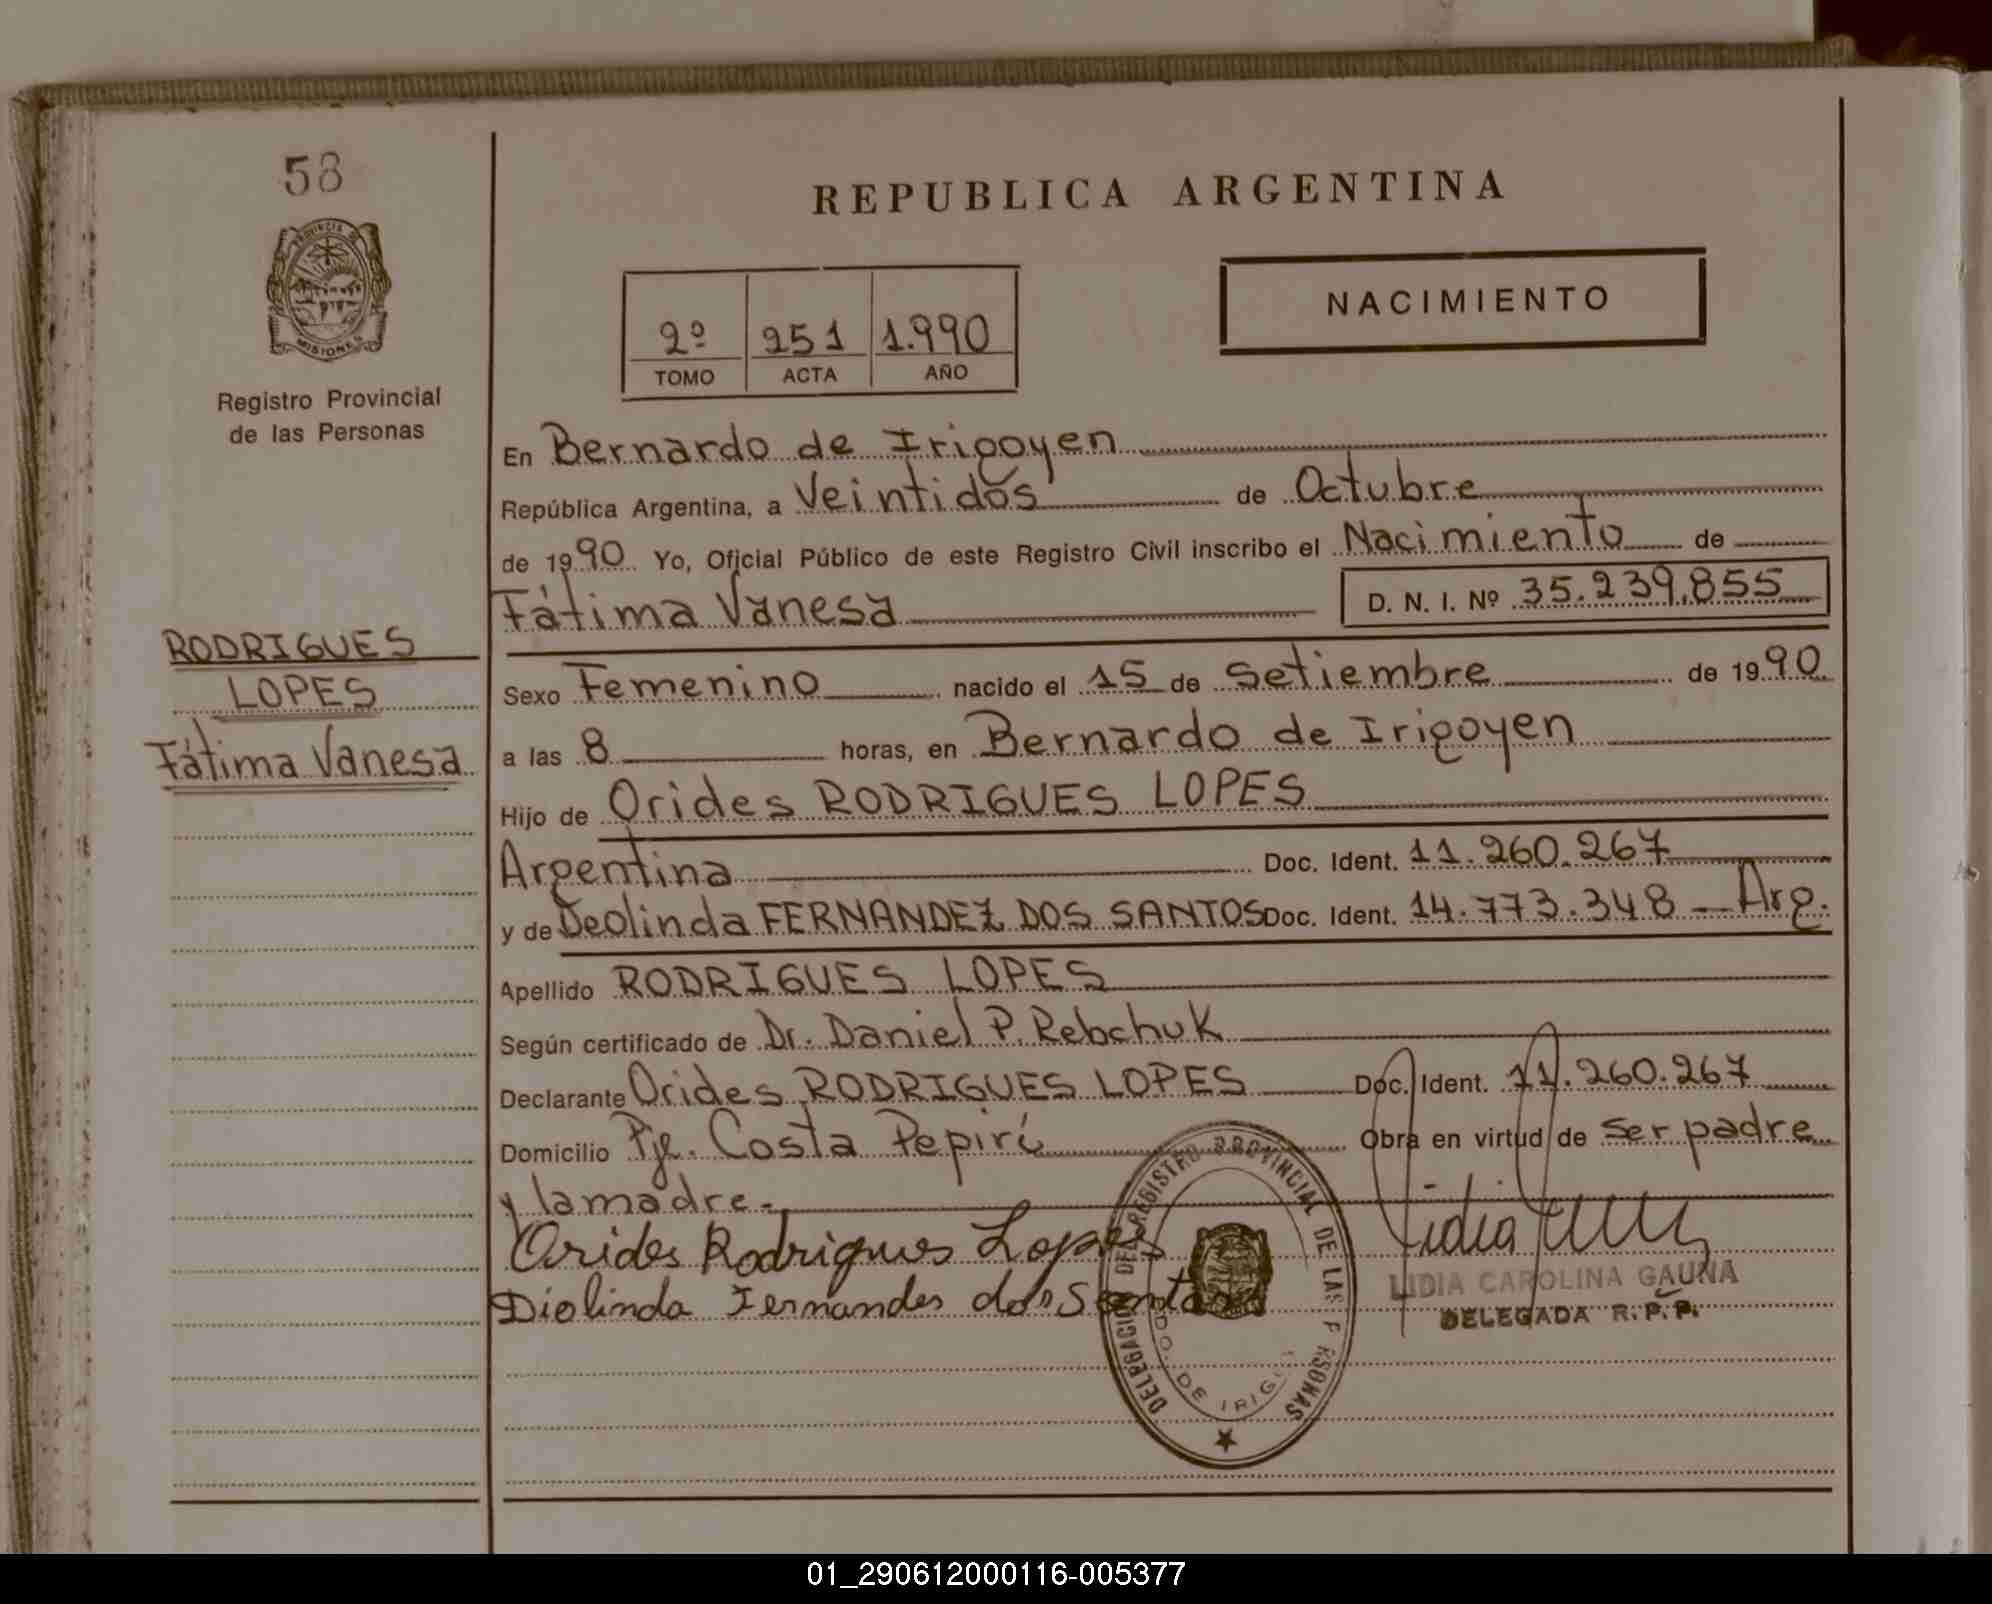 58
PROVINCIA DE
MISIONES
Registro Provincial
de las Personas
RODRIGUES
LOPES
Fátima Vanesa
REPUBLICA ARGENTINA
2º 251 1.990
TOMO ACTA AÑO
NACIMIENTO
En Bernardo de Irigoyen
República Argentina, a Veintidós de Octubre
de 1990 Yo, Oficial Público de este Registro Civil inscribo el Nacimiento de
Fátima Vanesa D. N. I. Nº 35.239.855
Sexo Femenino nacido el 15 de Setiembre de 1990.
a las 8 horas, en Bernardo de Irigoyen
Hijo de Orides RODRIGUES LOPES
Argentina Doc. Ident. 11.260.267
y de Deolinda FERNANDEZ DOS SANTOS Doc. Ident. 14.773.348 - Arg.
Apellido RODRIGUES LOPES
Según certificado de Dr. Daniel P. Rebchuk
Declarante Orides RODRIGUES LOPES Doc. Ident. 11.260.267
Domicilio Pje. Costa Pepirí Obra en virtud de ser padre
y la madre.-
Orides Rodrigues Lopes
Diolinda Fernandes dos Santos
DELEGACION DEL REGISTRO PROVINCIAL DE LAS PERSONAS
BDO. DE IRIG
LIDIA CAROLINA GAUNA
DELEGADA R.P.P.
01_290612000116-005377